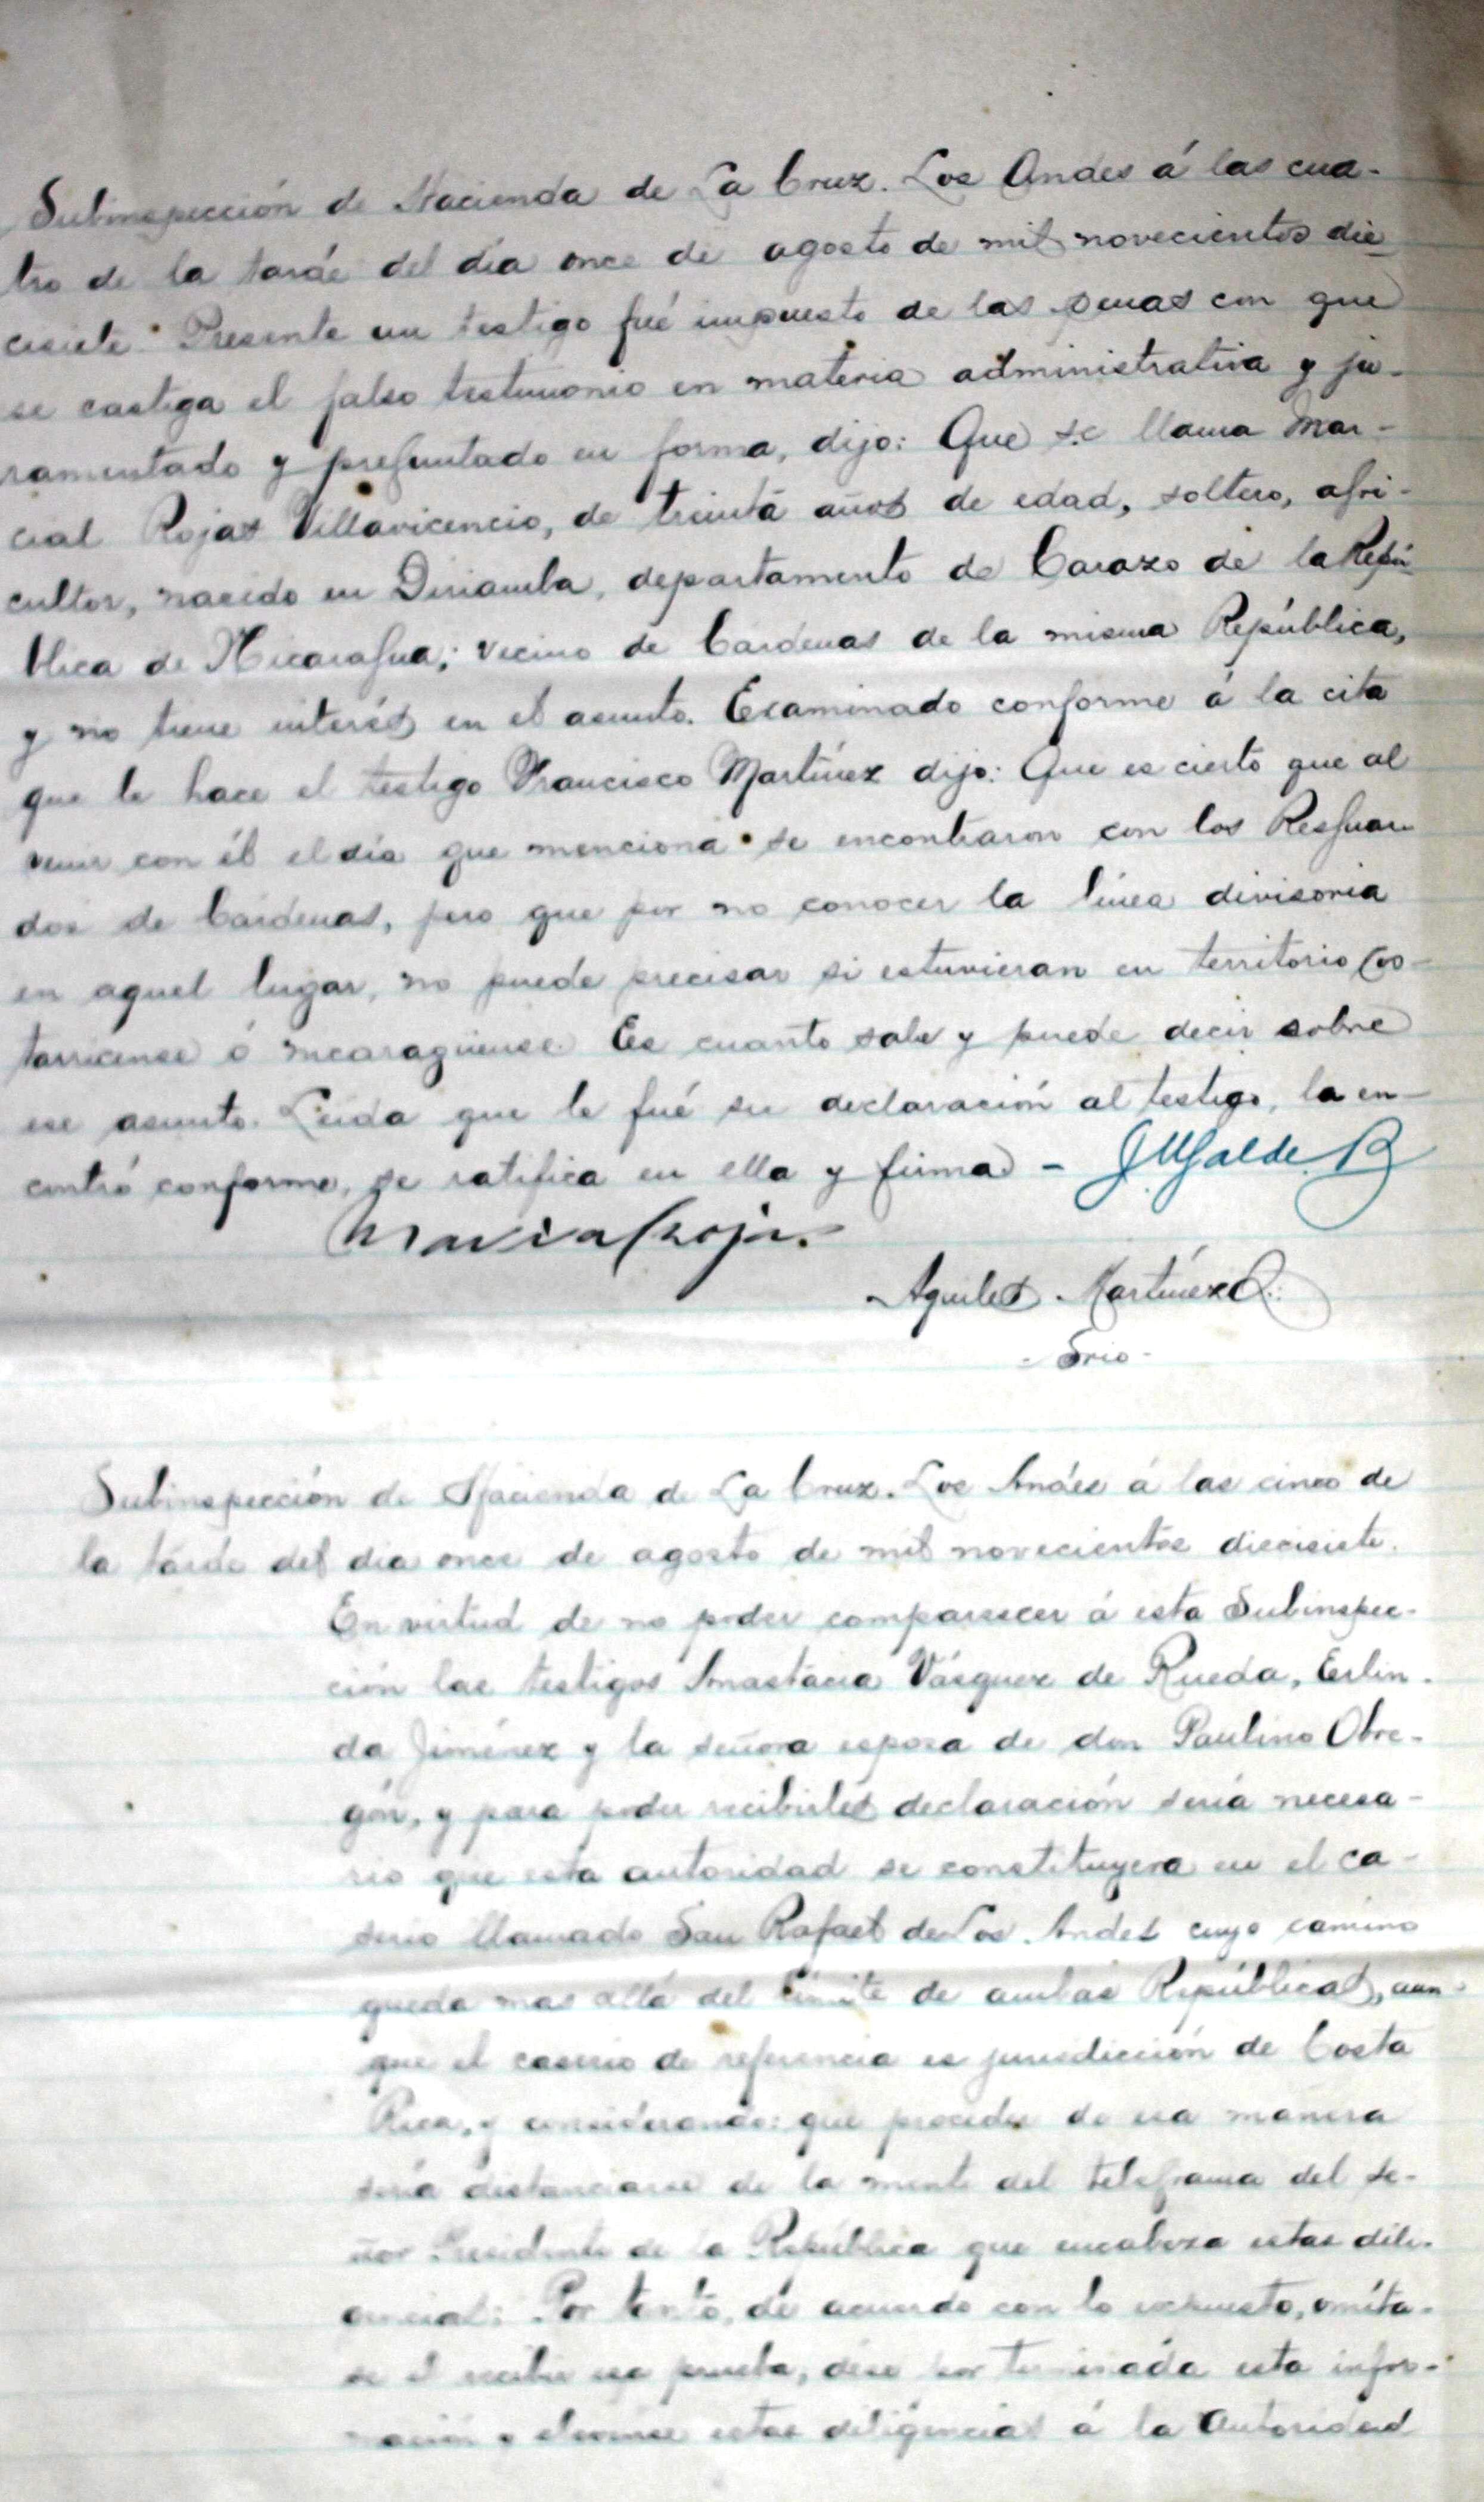 Subinspección de Hacienda de La Cruz. Los Andes á las cua-
tro de la tarde del día once de agosto de mil novecientos die
cisiete. Presente un testigo fué impuesto de las penas con que
se castiga el falso testimonio en materia administrativa y ju-
ramentado y preguntado en forma, dijo: Que se llama Mar-
cial Rojas Villavicencio, de treinta años de edad, soltero, agri-
cultor, nacido en Diriamba, departamento de Carazo de la Repú
blica de Nicaragua; vecino de Cárdenas de la misma República,
y no tiene interés en el asunto. Examinado conforme á la cita
que le hace el testigo Francisco Martínez dijo: Que es cierto que al
venir con él el día que menciona se encontraron con los Resguar
dos de Cárdenas, pero que por no conocer la línea divisoria
en aquel lugar, no puede precisar si estuvieran en territorio cos-
tarricense ó nicaragüense. Es cuanto sabe y puede decir sobre
ese asunto. Leída que le fué su declaración al testigo, la en-
contró conforme, se ratifica en ella y firma - J. Ugalde B
Marcial Rojas.
Aquiles Martínez
- Srio -
Subinspección de Hacienda de La Cruz. Los Andes á las cinco de
la tarde del día once de agosto de mil novecientos diecisiete.
En virtud de no poder comparecer á esta Subinspec-
ción las testigos Anastacia Vásquez de Rueda, Erlin-
da Jiménez y la señora esposa de don Paulino Obre-
gón, y para poder recibirles declaración sería necesa-
rio que esta autoridad se constituyera en el ca-
serio llamado San Rafael de Los Andes cuyo camino
queda mas allá del límite de ambas Repúblicas, aun-
que el caserio de referencia es jurisdicción de Costa
Rica, y considerando: que proceder de esa manera
sería distanciarse de la mente del telegrama del se-
ñor Presidente de la República que encabeza estas dili-
gencias: Por tanto, de acuerdo con lo expuesto, omíta-
se el recibir esa prueba, dése por terminada esta infor-
mación y elévense estas diligencias á la Autoridad